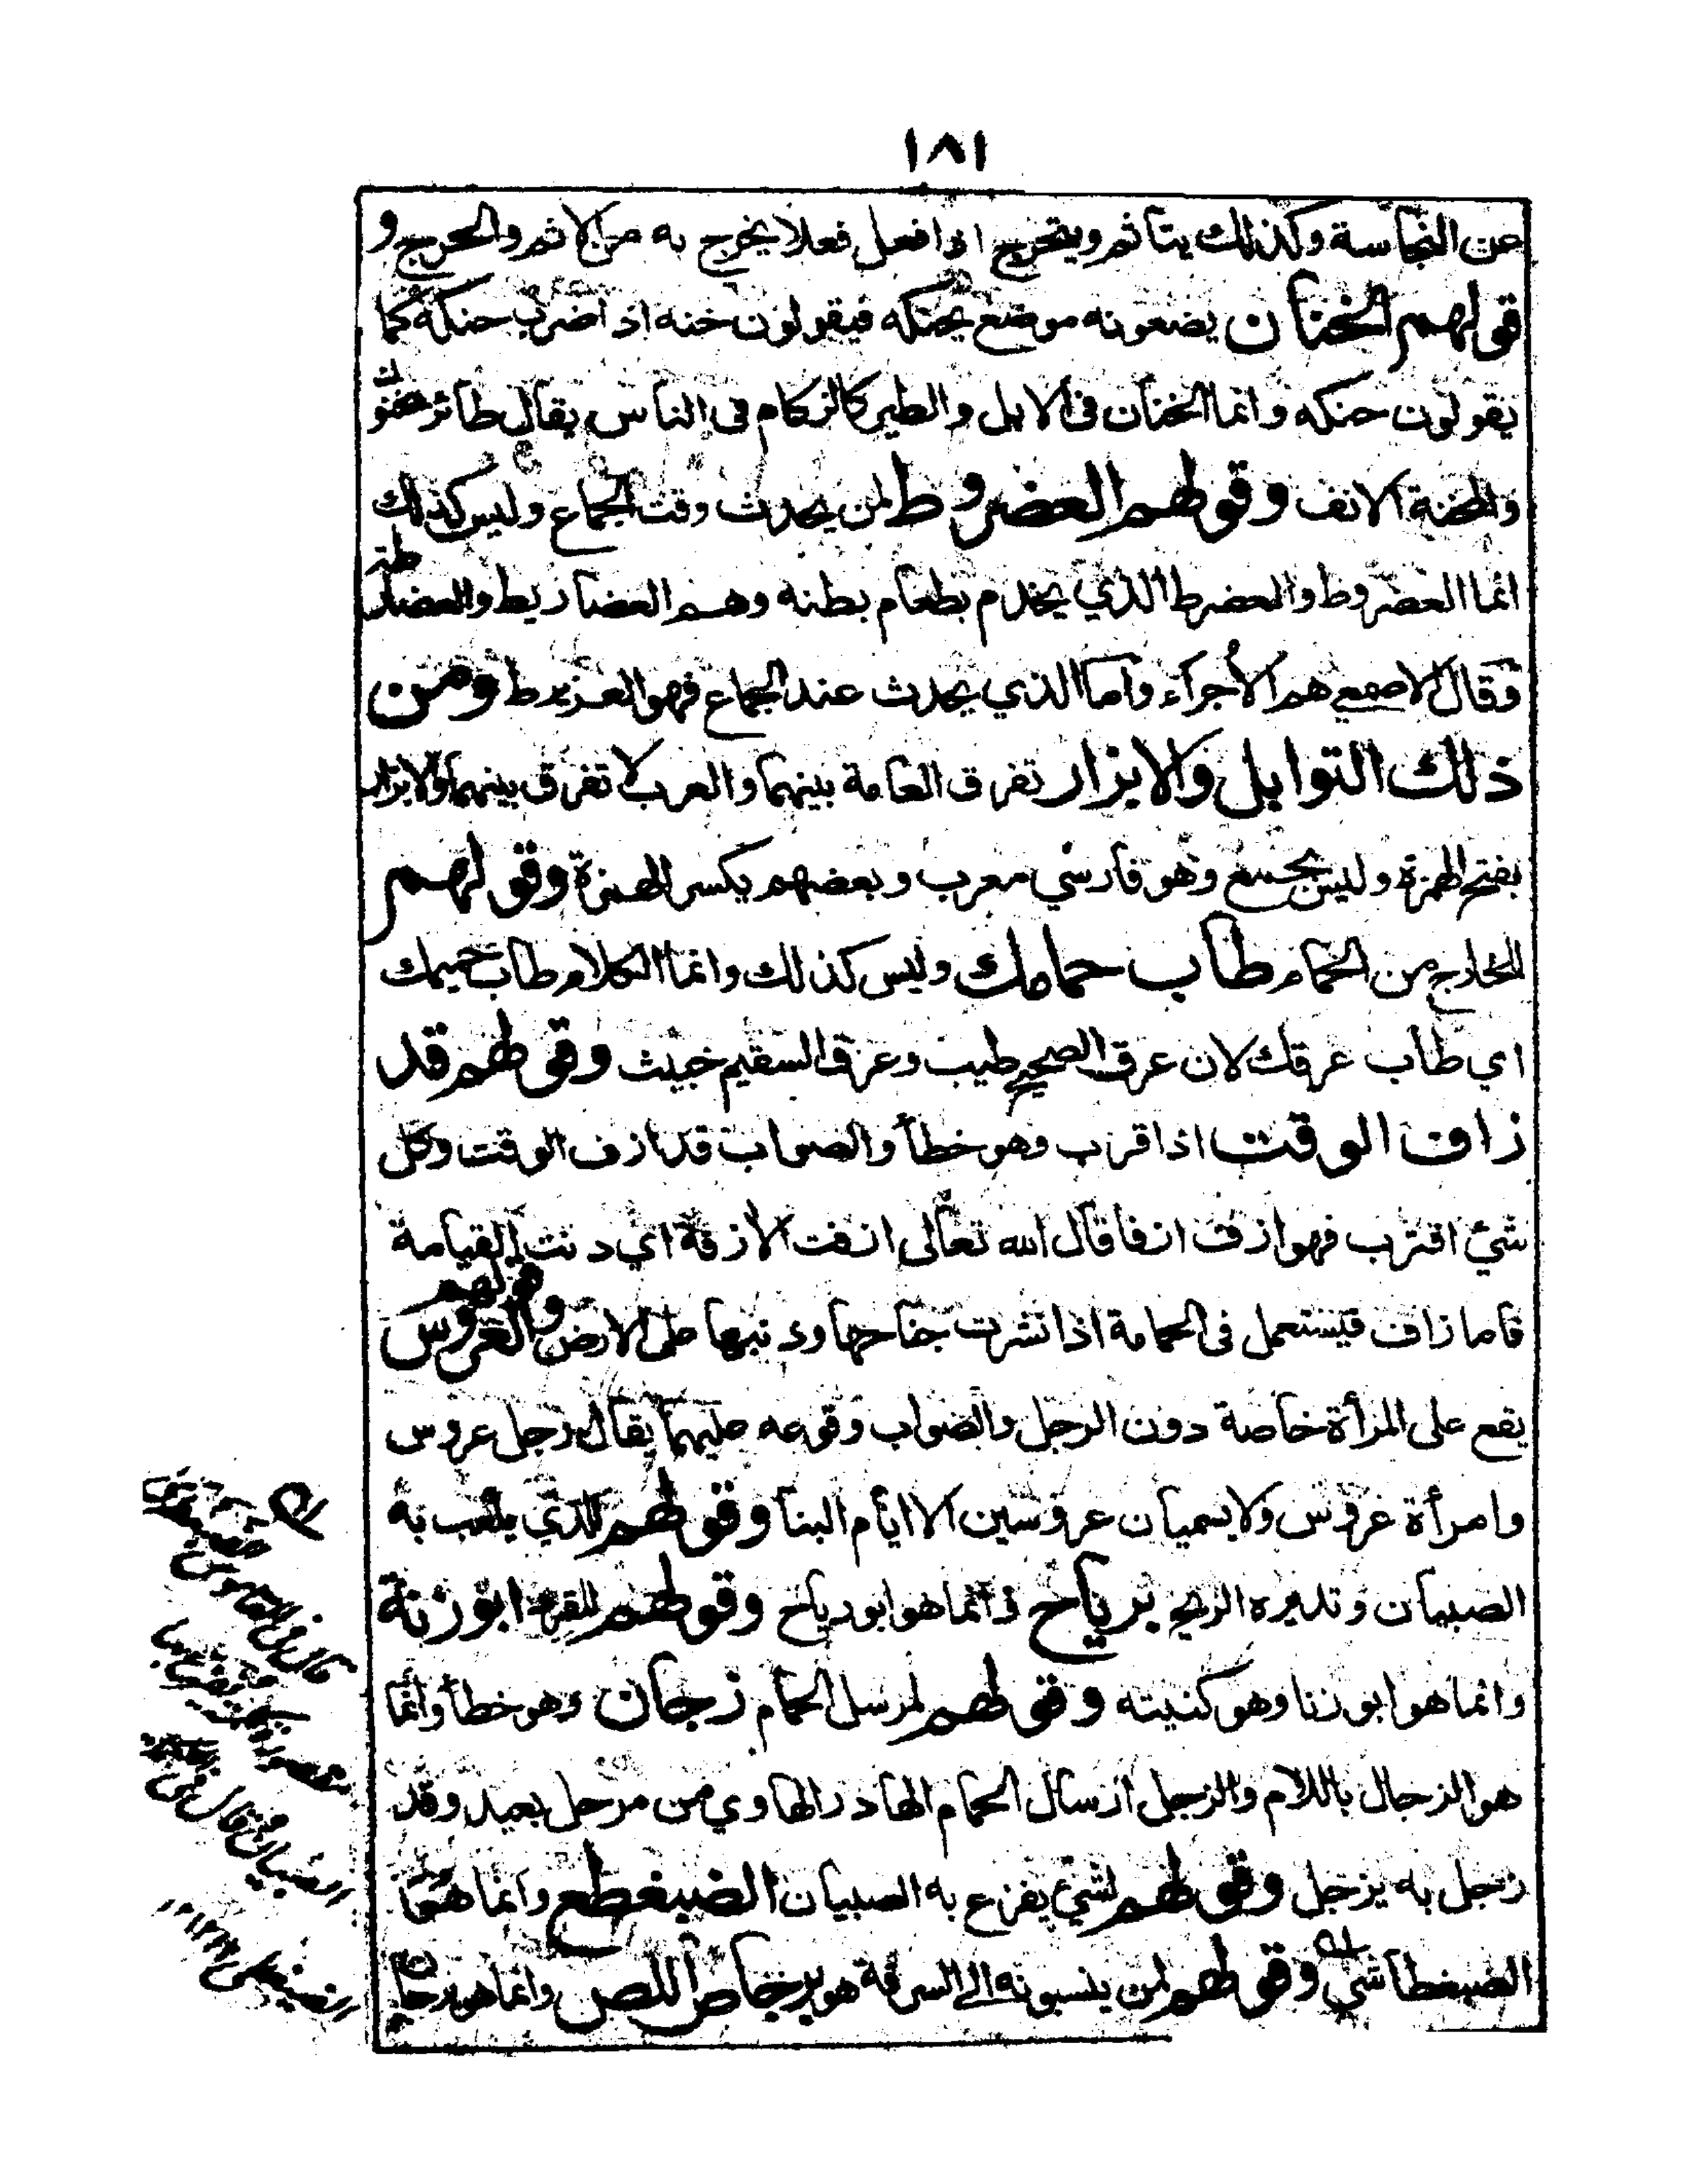 ١٨١
عن النجاسة وكذلك يتأثم ويتحرج اذا فعل فعلا يخرج به من الاثم والحرج و
قولهم الخنان يضعونه موضع يحنكه فيقولون خنه اذا ضرب حنكه كما
يقولون حنكه وانما الخنان في الابل والطير كالزكام في الناس يقال طائر مخنون
والمخنة الانف وقولهم العضروط لمن يحدث وقت الجماع وليس كذلك
انما العضروط والعضرط الذي يخدم بطعام بطنه وهم العضاريط والعضارطة
وقال الاصمعي هم الأجراء وأما الذي يحدث عند الجماع فهو العذيوط ومن
ذلك التوابل والابزار تفرق العامة بينهما والعرب لا تفرق بينهما والابزار
بفتح الهمزة وليس بجمع وهو فارسي معرب وبعضهم يكسر الهمزة وقولهم
للخارج من الحمام طاب حمامك وليس كذلك وانما الكلام طاب حميمك
اي طاب عرقك لان عرق الصحيح طيب وعرق السقيم خبيث وقولهم قد
زاف الوقت اذا قرب وهو خطأ والصواب قد ازف الوقت وكل
شيئ اقترب فهو ازف ازفا قال الله تعالى ازفت الأزفة اي دنت القيامة
فاما زاف فيستعمل في الحمامة اذا نشرت جناحها وذنبها على الارض وقولهم والعروس
يقع على المرأة خاصة دون الرجل والصواب وقوعه عليهما يقال رجل عروس
وامرأة عروس ولا يسميان عروسين الا ايام البنا وقولهم للذي يلعب به
الصبيان وتديره الريح برياح وانما هو ابو رياح وقولهم للقرد ابو زنة
وانما هو ابو زنا وهو كنيته وقولهم لمرسل الحمام زجان وهو خطأ وانما
هو الزجال باللام والزجل ارسال الحمام الهادر الهاوي من مرحل بعيد وقد
زجل به يزجل وقولهم لشيئ يفزع به الصبيان الضبغطع وانما هو
الضبغطا شيئ وقولهم لمن ينسبونه الى السرقة هو برجاص اللص وانما هو برجان
قال في القاموس